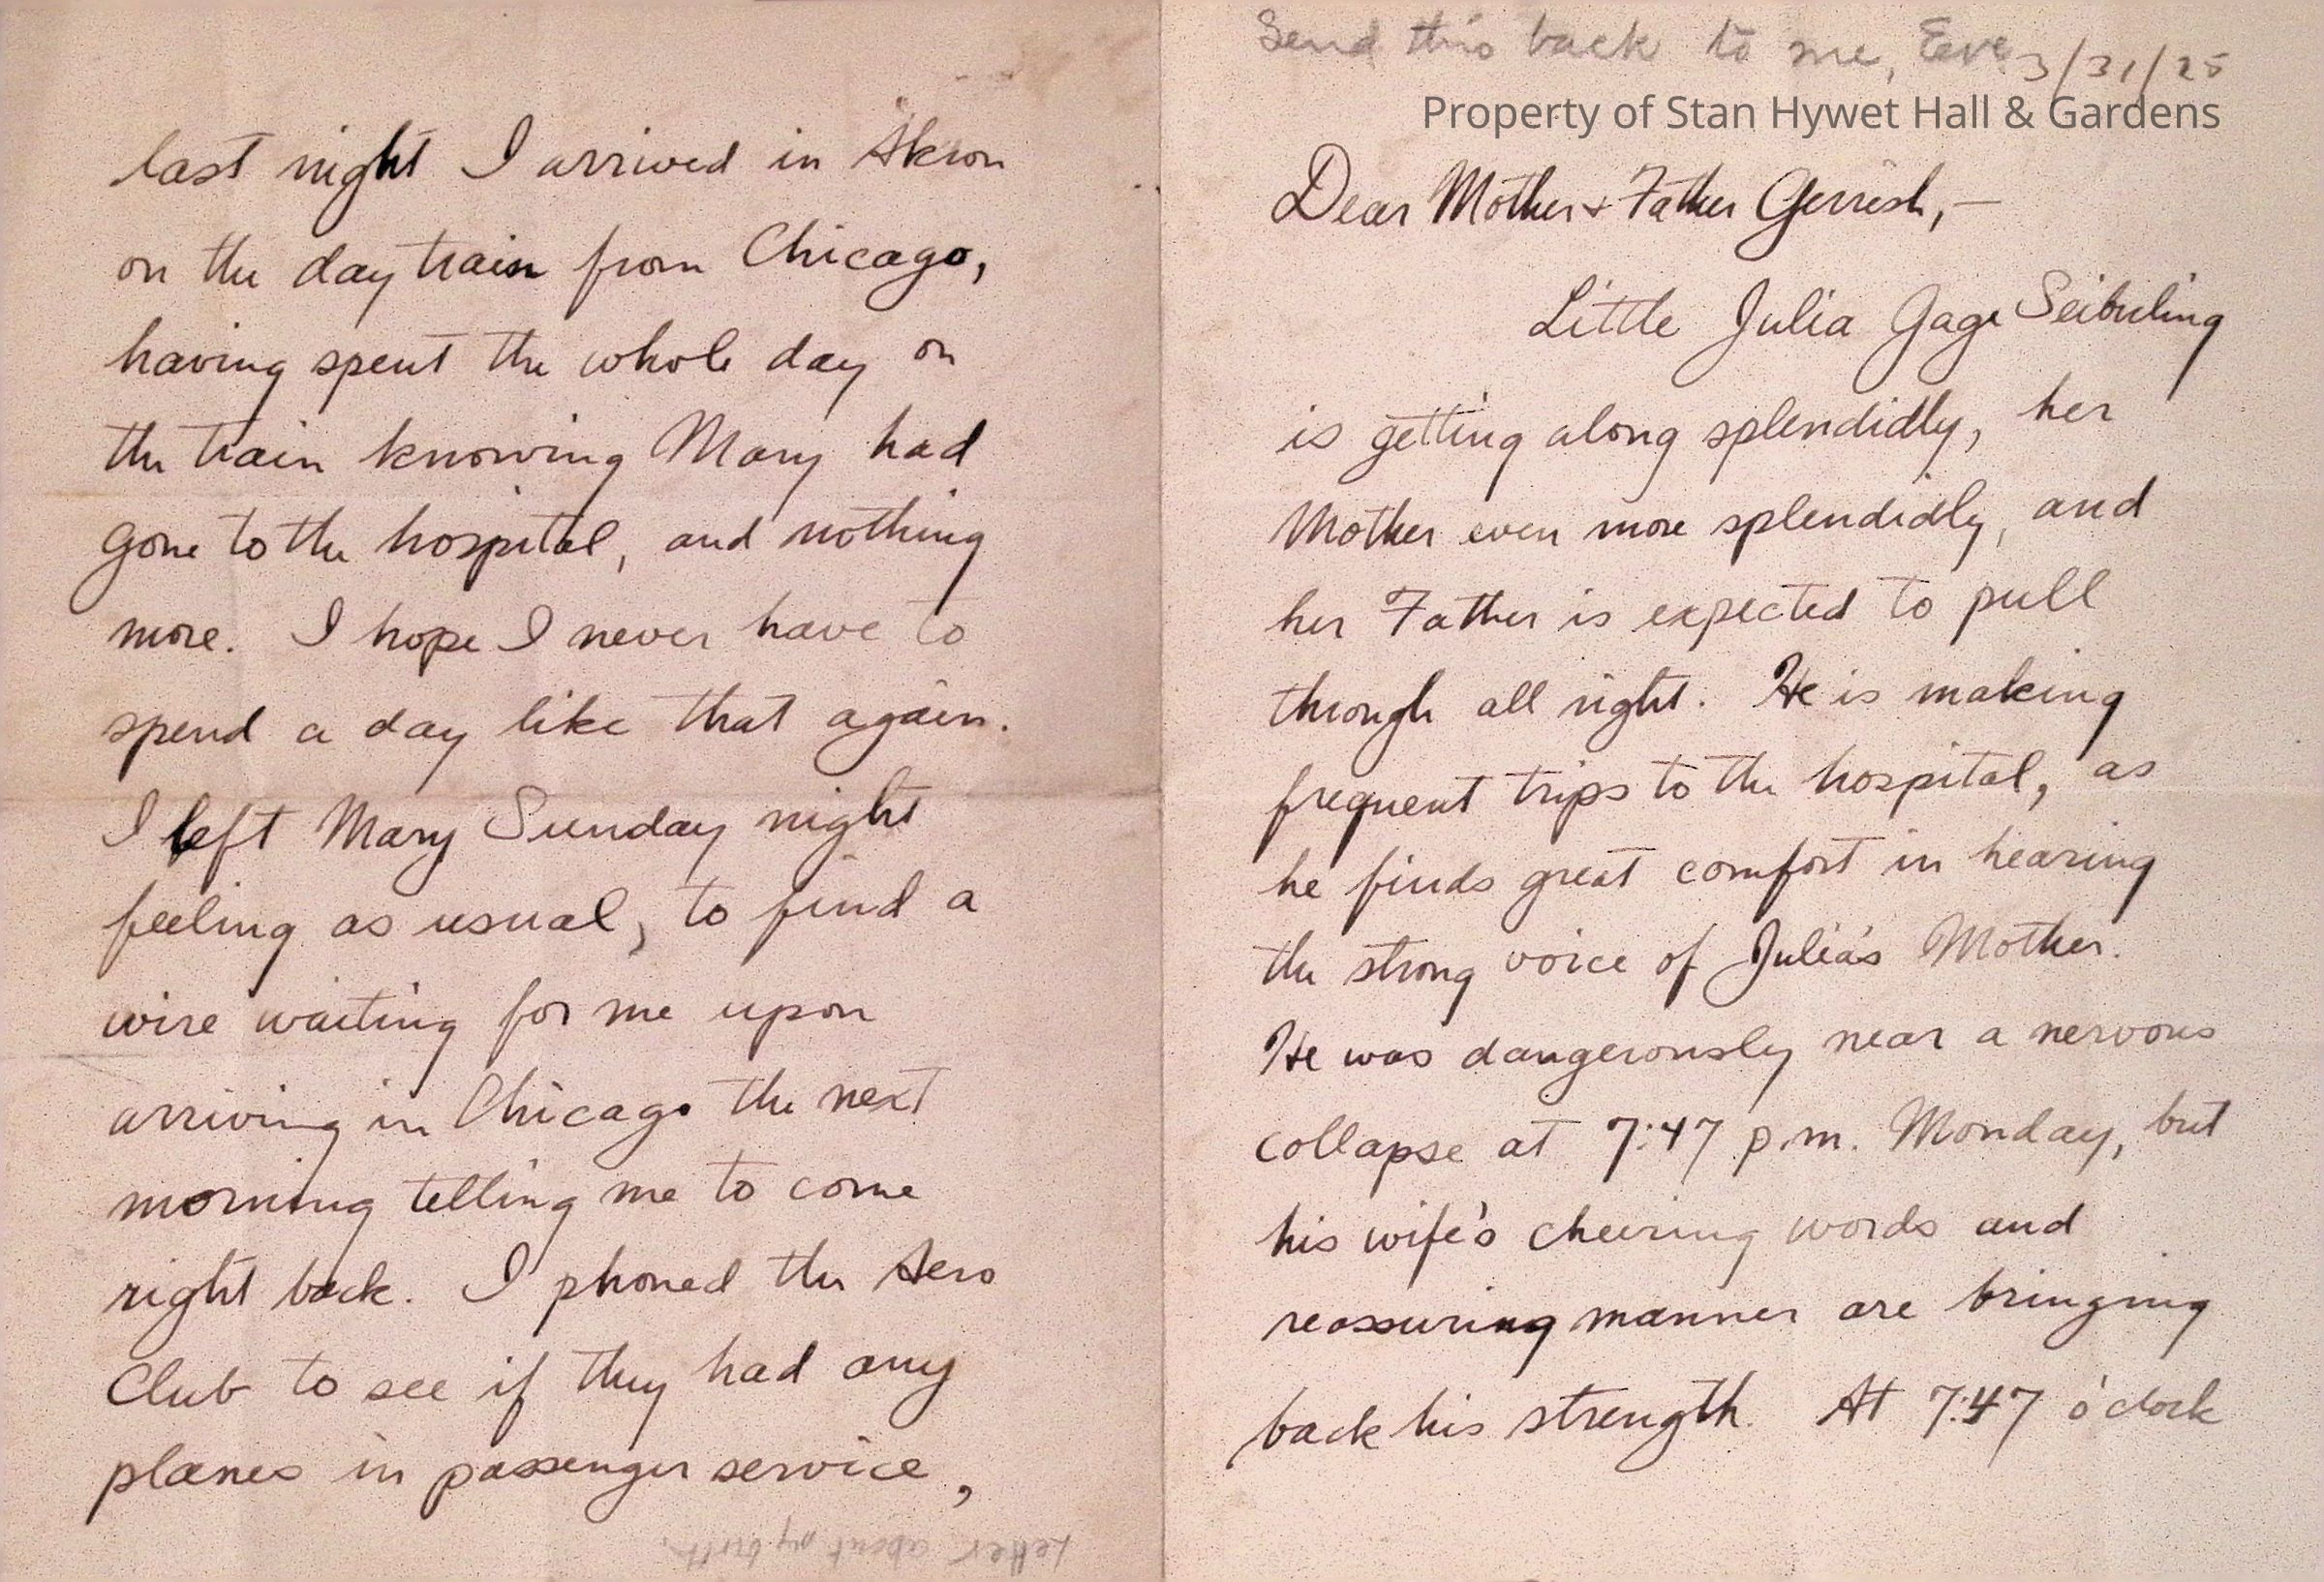 Send this back to me, Eve
3/31/25
Property of Stan Hywet Hall & Gardens
Dear Mother + Father Gerrish,—
Little Julia Gage Seiberling
is getting along splendidly, her
Mother even more splendidly, and
her Father is expected to pull
through all right. He is making
frequent trips to the hospital, as
he finds great comfort in hearing
the strong voice of Julia's Mother.
He was dangerously near a nervous
collapse at 7:47 p.m. Monday, but
his wife's cheering words and
reassuring manner are bringing
back his strength. At 7:47 o'clock
last night I arrived in Akron
on the day train from Chicago,
having spent the whole day on
the train knowing Mary had
gone to the hospital, and nothing
more. I hope I never have to
spend a day like that again.
I left Mary Sunday night
feeling as usual, to find a
wire waiting for me upon
arriving in Chicago the next
morning telling me to come
right back. I phoned the Aero
Club to see if they had any
planes in passenger service,
Letter about my birth.